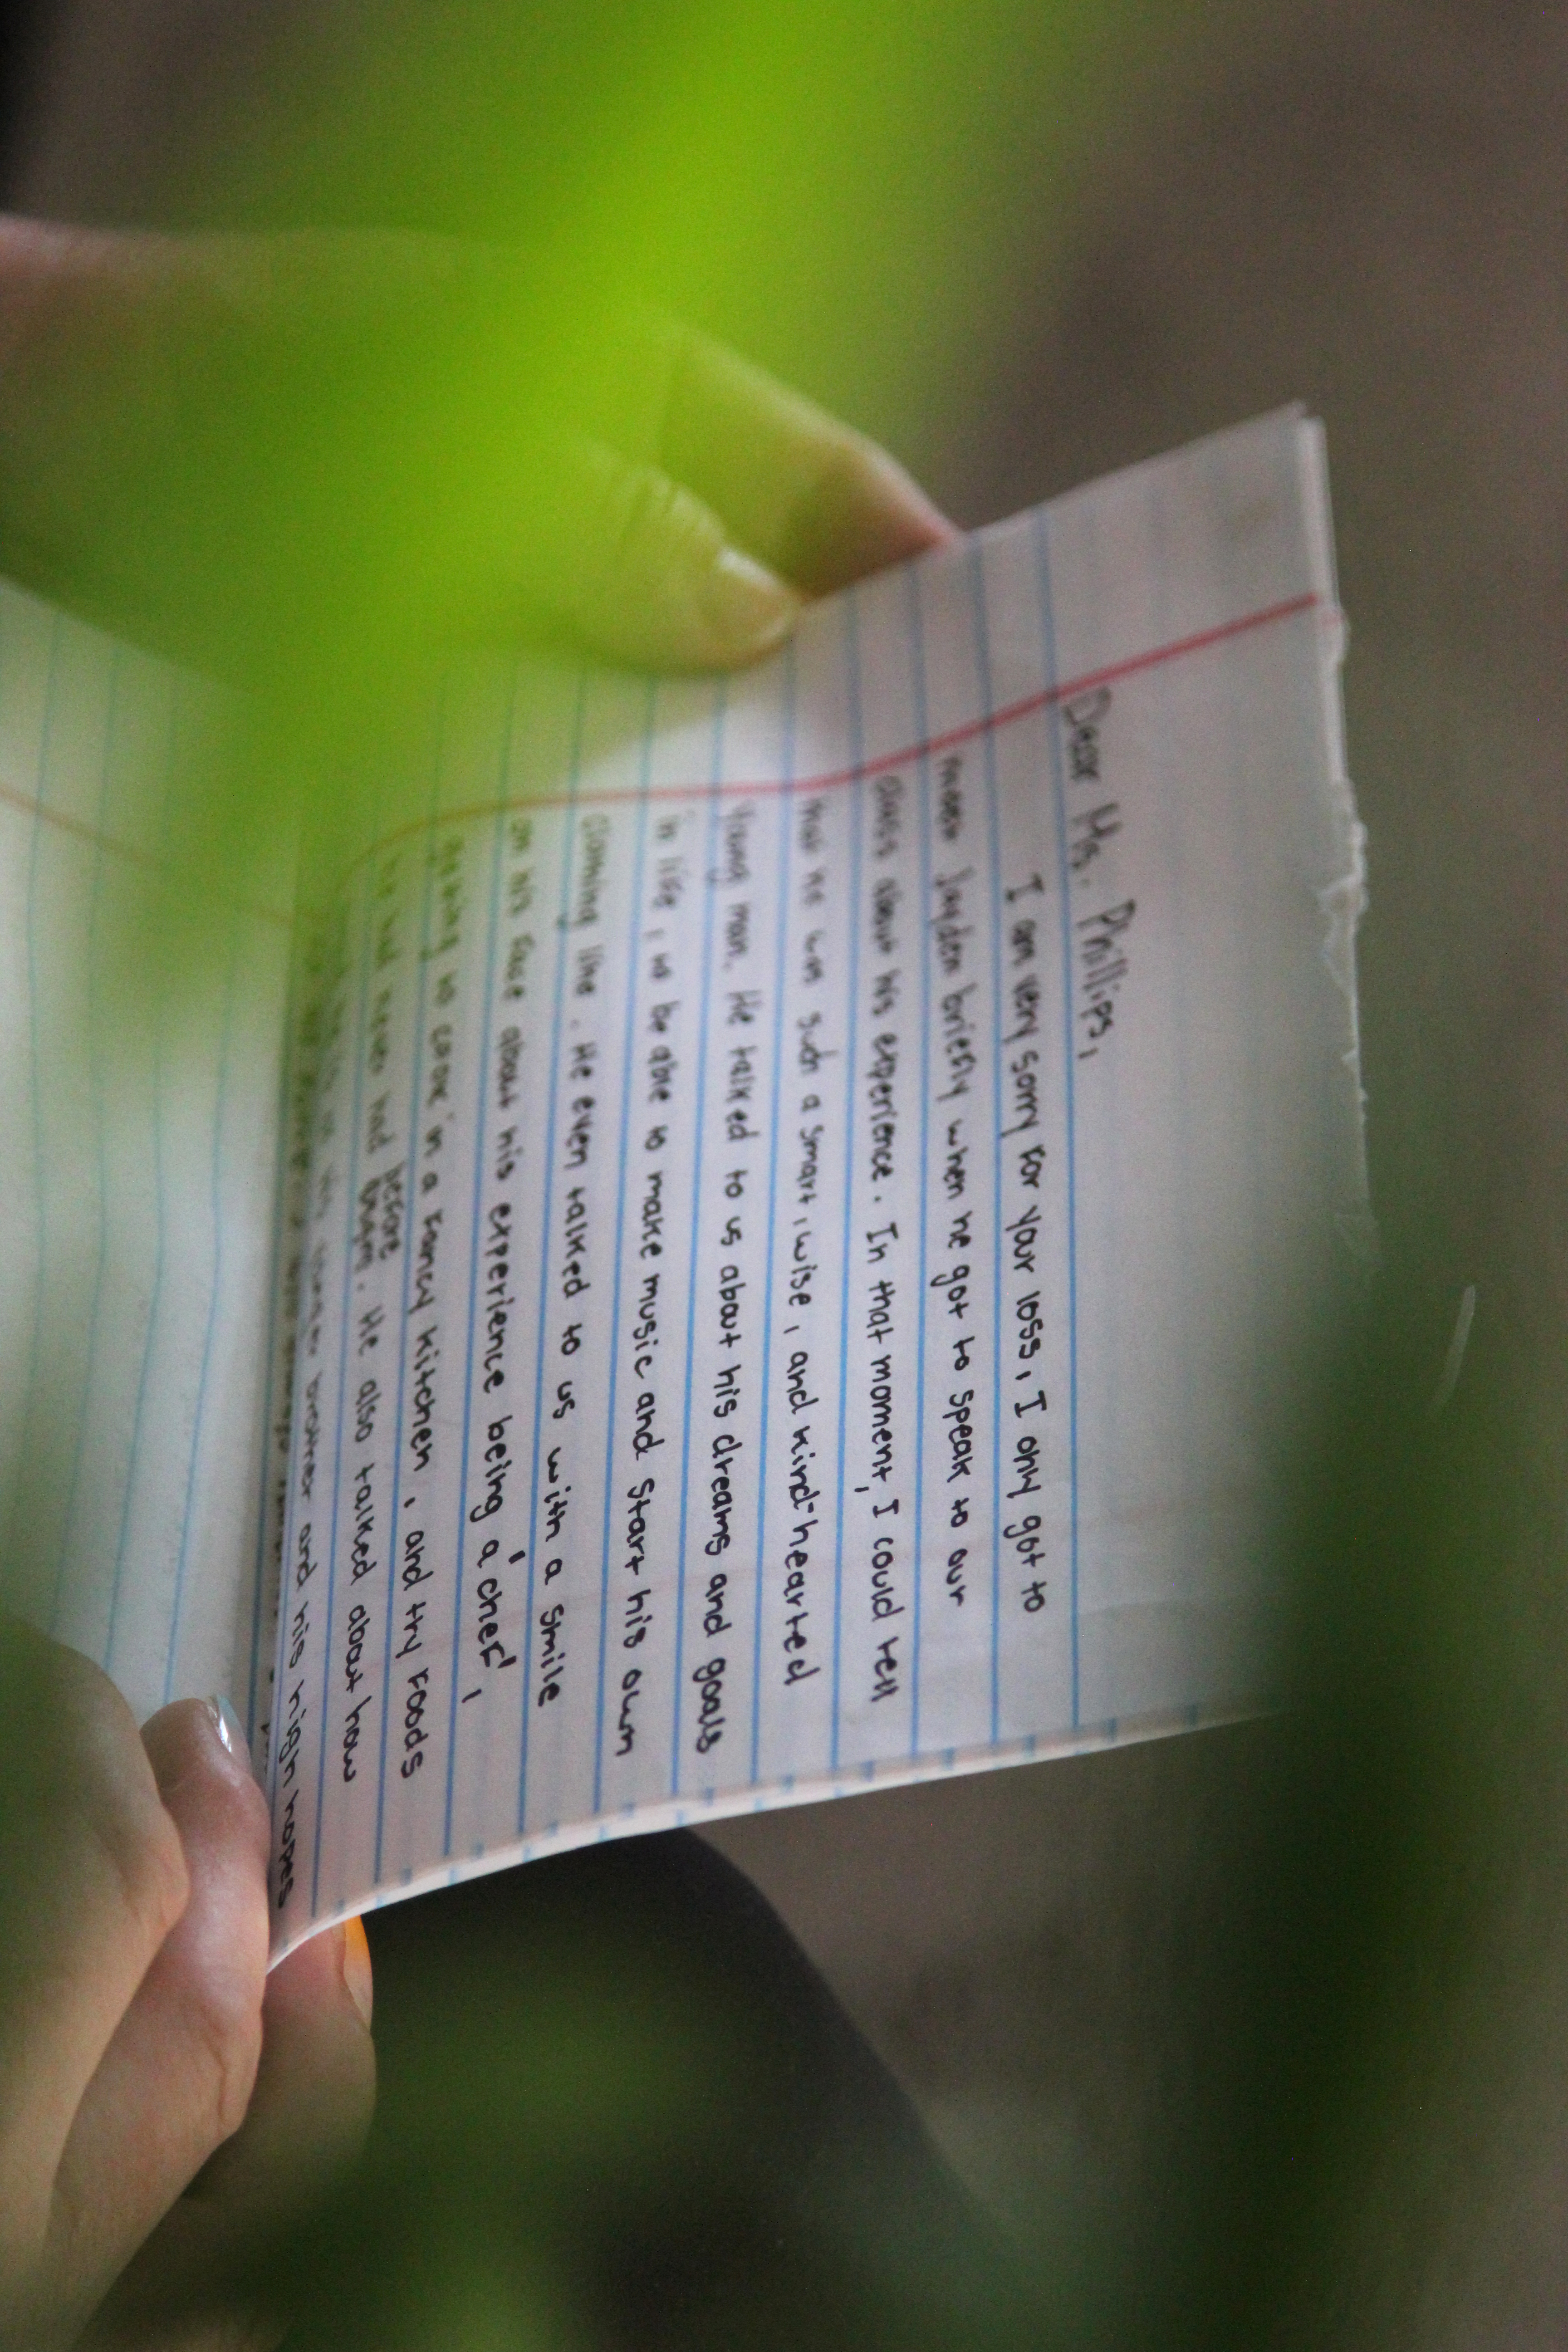 Dear Ms. Phillips,
I am very sorry for your loss, I only got to
meet Jayden briefly when he got to speak to our
class about his experience. In that moment, I could tell
that he was such a smart, wise, and kind-hearted
young man. He talked to us about his dreams and goals
in life, to be able to make music and start his own
claming line. He even talked to us with a smile
on his face about his experience being a 'chef',
getting to cook in a fancy kitchen, and try foods
he had never had before. He also talked about how
brother and his high hopes